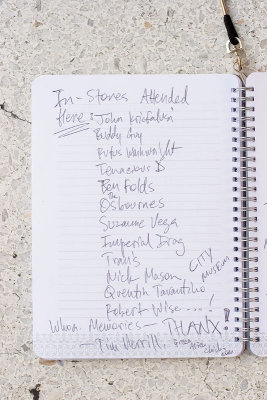 In-Stores Attended
Here: John Kricfalusi
Buddy Guy
Rufus Wainwright
Tenacious D
Ben Folds
The Osbournes
Suzanne Vega
Imperial Drag
Travis
Nick Mason
Quentin Tarantino
Robert Wise ...!
CITY MUSEUM
Whoa. Memories— THANX!
— Tim Merrill,